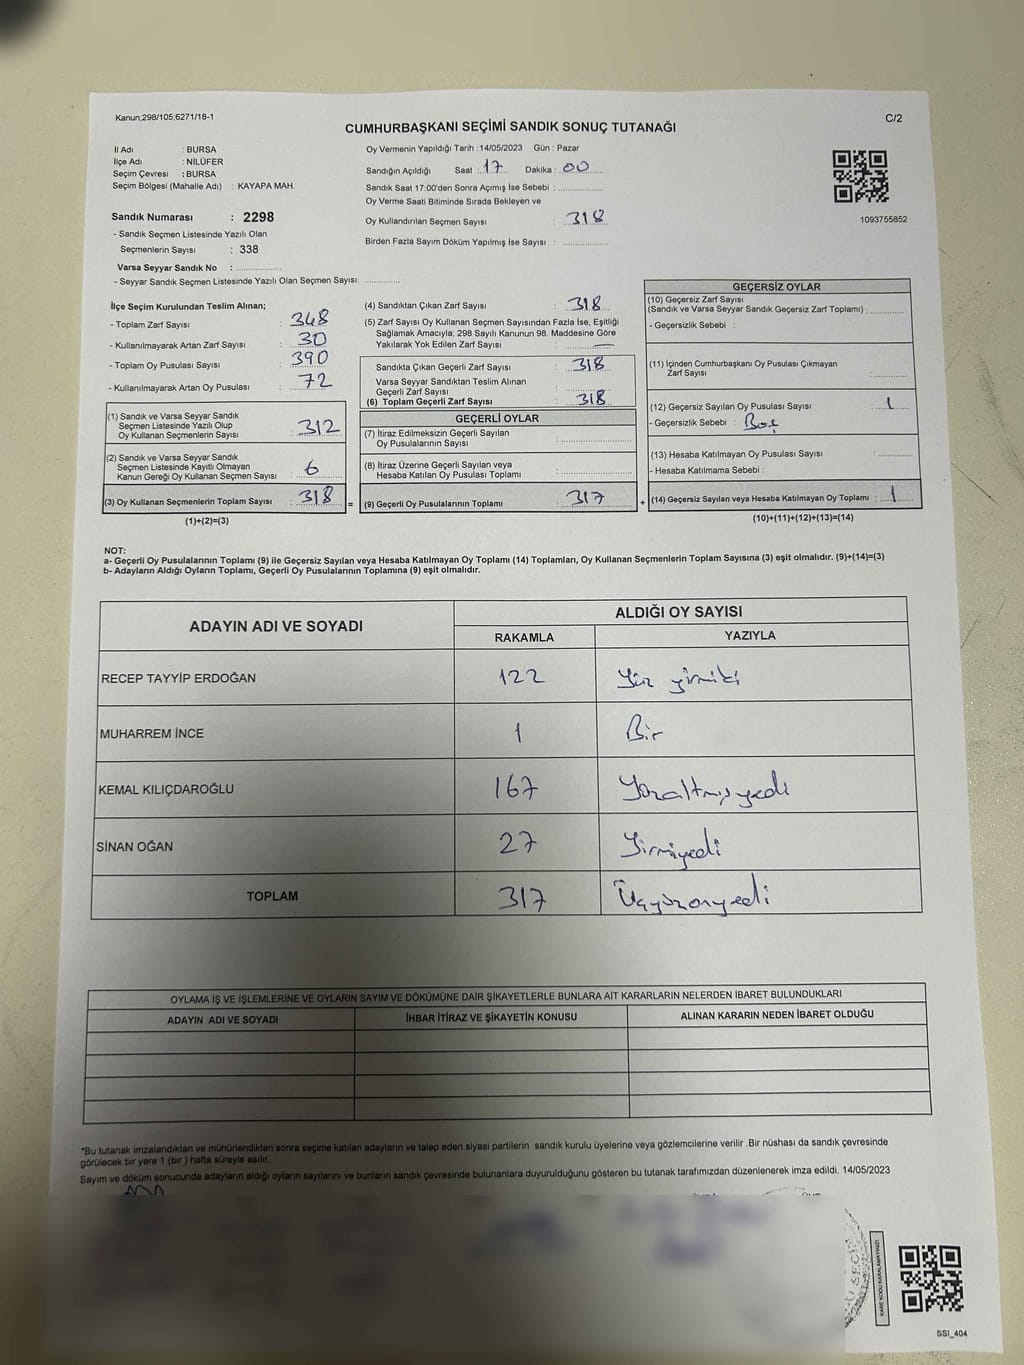 Kanun;298/105;6271/18-1
C/2
CUMHURBAŞKANI SEÇİMİ SANDIK SONUÇ TUTANAĞI
İl Adı : BURSA
İlçe Adı : NİLÜFER
Seçim Çevresi : BURSA
Seçim Bölgesi (Mahalle Adı) : KAYAPA MAH.
Sandık Numarası : 2298
- Sandık Seçmen Listesinde Yazılı Olan
Seçmenlerin Sayısı : 338
Varsa Seyyar Sandık No : ..............
- Seyyar Sandık Seçmen Listesinde Yazılı Olan Seçmen Sayısı: ............
Oy Vermenin Yapıldığı Tarih : 14/05/2023 Gün : Pazar
Sandığın Açıldığı Saat : 17 Dakika : 00
Sandık Saat 17:00'den Sonra Açımış İse Sebebi : ..............
Oy Verme Saati Bitiminde Sırada Bekleyen ve
Oy Kullandırılan Seçmen Sayısı : 318
Birden Fazla Sayım Döküm Yapılmış İse Sayısı : ..............
1093755852
İlçe Seçim Kurulundan Teslim Alınan;
- Toplam Zarf Sayısı : 348
- Kullanılmayarak Artan Zarf Sayısı : 30
- Toplam Oy Pusulası Sayısı : 390
- Kullanılmayarak Artan Oy Pusulası : 72
(1) Sandık ve Varsa Seyyar Sandık
Seçmen Listesinde Yazılı Olup
Oy Kullanan Seçmenlerin Sayısı : 312
(2) Sandık ve Varsa Seyyar Sandık
Seçmen Listesinde Kayıtlı Olmayan
Kanun Gereği Oy Kullanan Seçmen Sayısı : 6
(3) Oy Kullanan Seçmenlerin Toplam Sayısı : 318 =
(1)+(2)=(3)
(4) Sandıktan Çıkan Zarf Sayısı : 318
(5) Zarf Sayısı Oy Kullanan Seçmen Sayısından Fazla İse, Eşitliği
Sağlamak Amacıyla; 298 Sayılı Kanunun 98. Maddesine Göre
Yakılarak Yok Edilen Zarf Sayısı : —
Sandıkta Çıkan Geçerli Zarf Sayısı : 318
Varsa Seyyar Sandıktan Teslim Alınan
Geçerli Zarf Sayısı :
(6) Toplam Geçerli Zarf Sayısı : 318
GEÇERLİ OYLAR
(7) İtiraz Edilmeksizin Geçerli Sayılan
Oy Pusulalarının Sayısı : ..............
(8) İtiraz Üzerine Geçerli Sayılan veya
Hesaba Katılan Oy Pusulası Toplamı : ..............
(9) Geçerli Oy Pusulalarının Toplamı : 317 +
GEÇERSİZ OYLAR
(10) Geçersiz Zarf Sayısı
(Sandık ve Varsa Seyyar Sandık Geçersiz Zarf Toplamı) : ..........
- Geçersizlik Sebebi :
(11) İçinden Cumhurbaşkanı Oy Pusulası Çıkmayan
Zarf Sayısı : ..........
(12) Geçersiz Sayılan Oy Pusulası Sayısı : 1
- Geçersizlik Sebebi : Boş
(13) Hesaba Katılmayan Oy Pusulası Sayısı : ..........
- Hesaba Katılmama Sebebi :
(14) Geçersiz Sayılan veya Hesaba Katılmayan Oy Toplamı : 1
(10)+(11)+(12)+(13)=(14)
NOT:
a- Geçerli Oy Pusulalarının Toplamı (9) ile Geçersiz Sayılan veya Hesaba Katılmayan Oy Toplamı (14) Toplamları, Oy Kullanan Seçmenlerin Toplam Sayısına (3) eşit olmalıdır. (9)+(14)=(3)
b- Adayların Aldığı Oyların Toplamı, Geçerli Oy Pusulalarının Toplamına (9) eşit olmalıdır.
ADAYIN ADI VE SOYADI
ALDIĞI OY SAYISI
RAKAMLA YAZIYLA
RECEP TAYYİP ERDOĞAN 122 Yüz yirmiki
MUHARREM İNCE 1 Bir
KEMAL KILIÇDAROĞLU 167 Yüzaltmışyedi
SİNAN OĞAN 27 Yirmiyedi
TOPLAM 317 Üçyüzonyedi
OYLAMA İŞ VE İŞLEMLERİNE VE OYLARIN SAYIM VE DÖKÜMÜNE DAİR ŞİKAYETLERLE BUNLARA AİT KARARLARIN NELERDEN İBARET BULUNDUKLARI
ADAYIN ADI VE SOYADI İHBAR İTİRAZ VE ŞİKAYETİN KONUSU ALINAN KARARIN NEDEN İBARET OLDUĞU
"Bu tutanak imzalandıktan ve mühürlendikten sonra seçime katılan adayların ve talep eden siyasi partilerin sandık kurulu üyelerine veya gözlemcilerine verilir .Bir nüshası da sandık çevresinde
görülecek bir yere 1 (bir ) hafta süreyle asılır.
Sayım ve döküm sonucunda adayların aldığı oyların sayılarını ve bunların sandık çevresinde bulunanlara duyurulduğunu gösteren bu tutanak tarafımızdan düzenlenerek imza edildi. 14/05/2023
KARE KODU KARALAMAYINIZ!
SSI_404